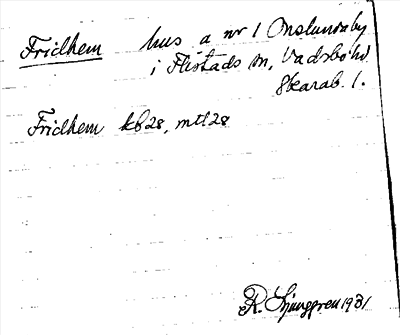 Fridhem hus å nr 1 Onslundaby
i Flistads sn, Vadsbo hd.
Skarab. l.
Fridhem kb28, mtl 28
R. Ljunggren 1931